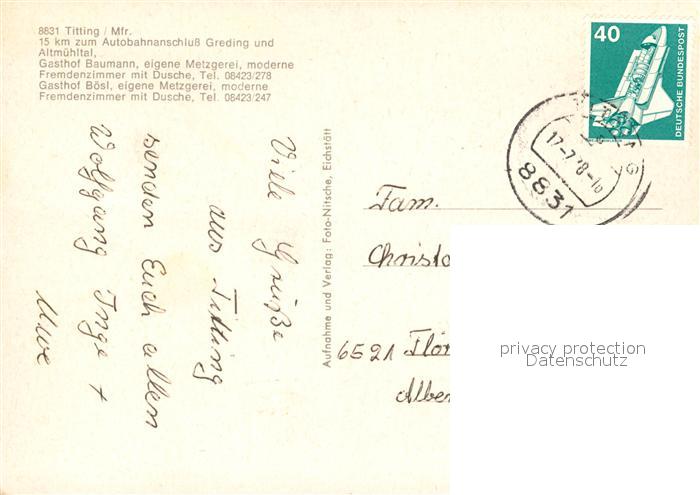 8831 Titting / Mfr.
15 km zum Autobahnanschluß Greding und
Altmühltal,
Gasthof Baumann, eigene Metzgerei, moderne
Fremdenzimmer mit Dusche, Tel. 08423/278
Gasthof Bösl, eigene Metzgerei, moderne
Fremdenzimmer mit Dusche, Tel. 08423/247
Viele Grüße
aus Titting
senden Euch allen
Wolfgang Inge +
Uwe
Aufnahme und Verlag: Foto-Nitsche, Eichstätt
40
DEUTSCHE BUNDESPOST
8831
Fam.
Christo
6521 Flör
Alber
privacy protection
Datenschutz